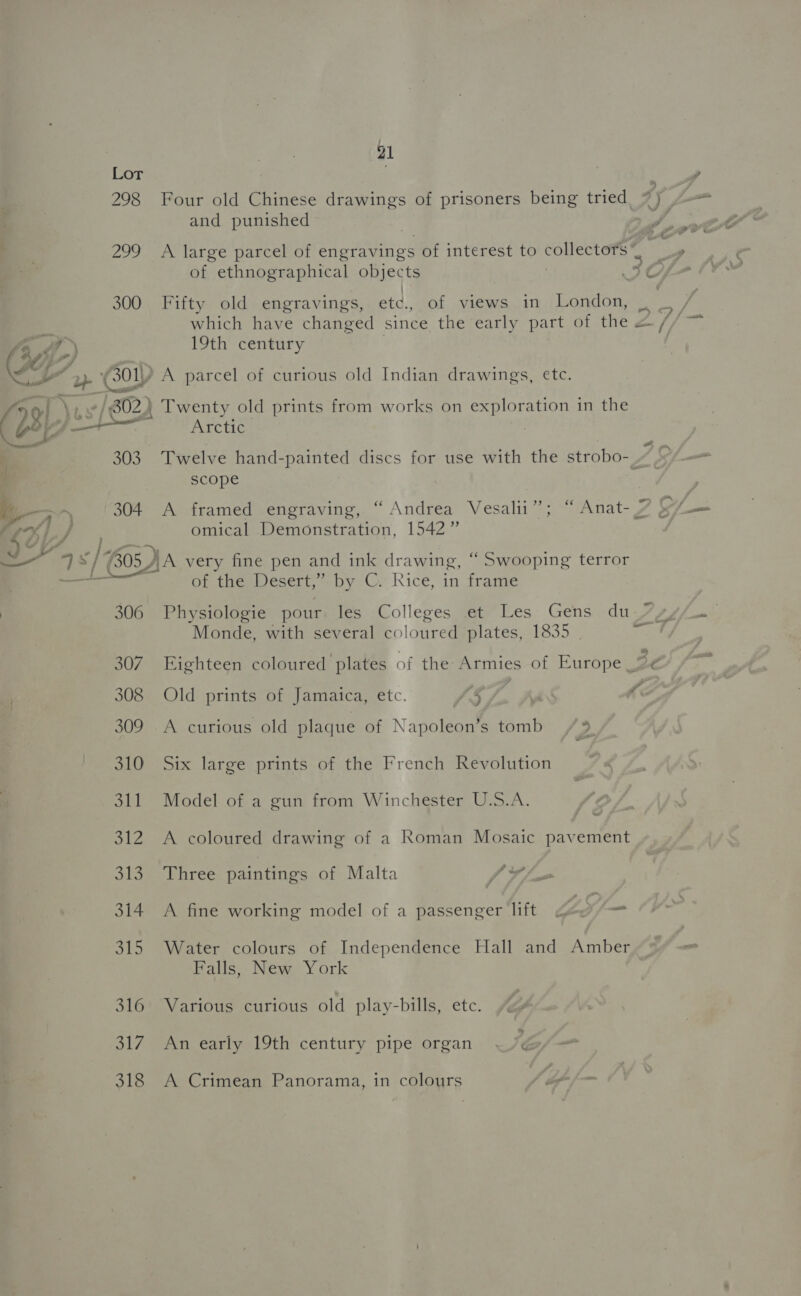 21
Lot
298 Four old Chinese drawings of prisoners being tried
and punished
299 A large parcel of engravings of interest to collectors
of ethnographical objects 30/-
300 Fifty old engravings, etc., of views in London,
which have changed since the early part of the
19th century
301 A parcel of curious old Indian drawings, etc.
302 Twenty old prints from works on exploration in the
Arctic
303 Twelve hand-painted discs for use with the strobo-
scope
304 A framed engraving, “ Andrea Vesalii”; “ Anat-
omical Demonstration, 1542 ”
305 A very fine pen and ink drawing, “ Swooping terror
of the Desert,” by C. Rice, in frame
306 Physiologie pour les Colleges et Les Gens du
Monde, with several coloured plates, 1835
307 Eighteen coloured plates of the Armies of Europe
308 Old prints of Jamaica, etc.
309 A curious old plaque of Napoleon’s tomb
310 Six large prints of the French Revolution
311 Model of a gun from Winchester U.S.A.
312 A coloured drawing of a Roman Mosaic pavement
313 Three paintings of Malta
314 A fine working model of a passenger lift
315 Water colours of Independence Hall and Amber
Falls, New York
316 Various curious old play-bills, etc.
317 An early 19th century pipe organ
318 A Crimean Panorama, in colours